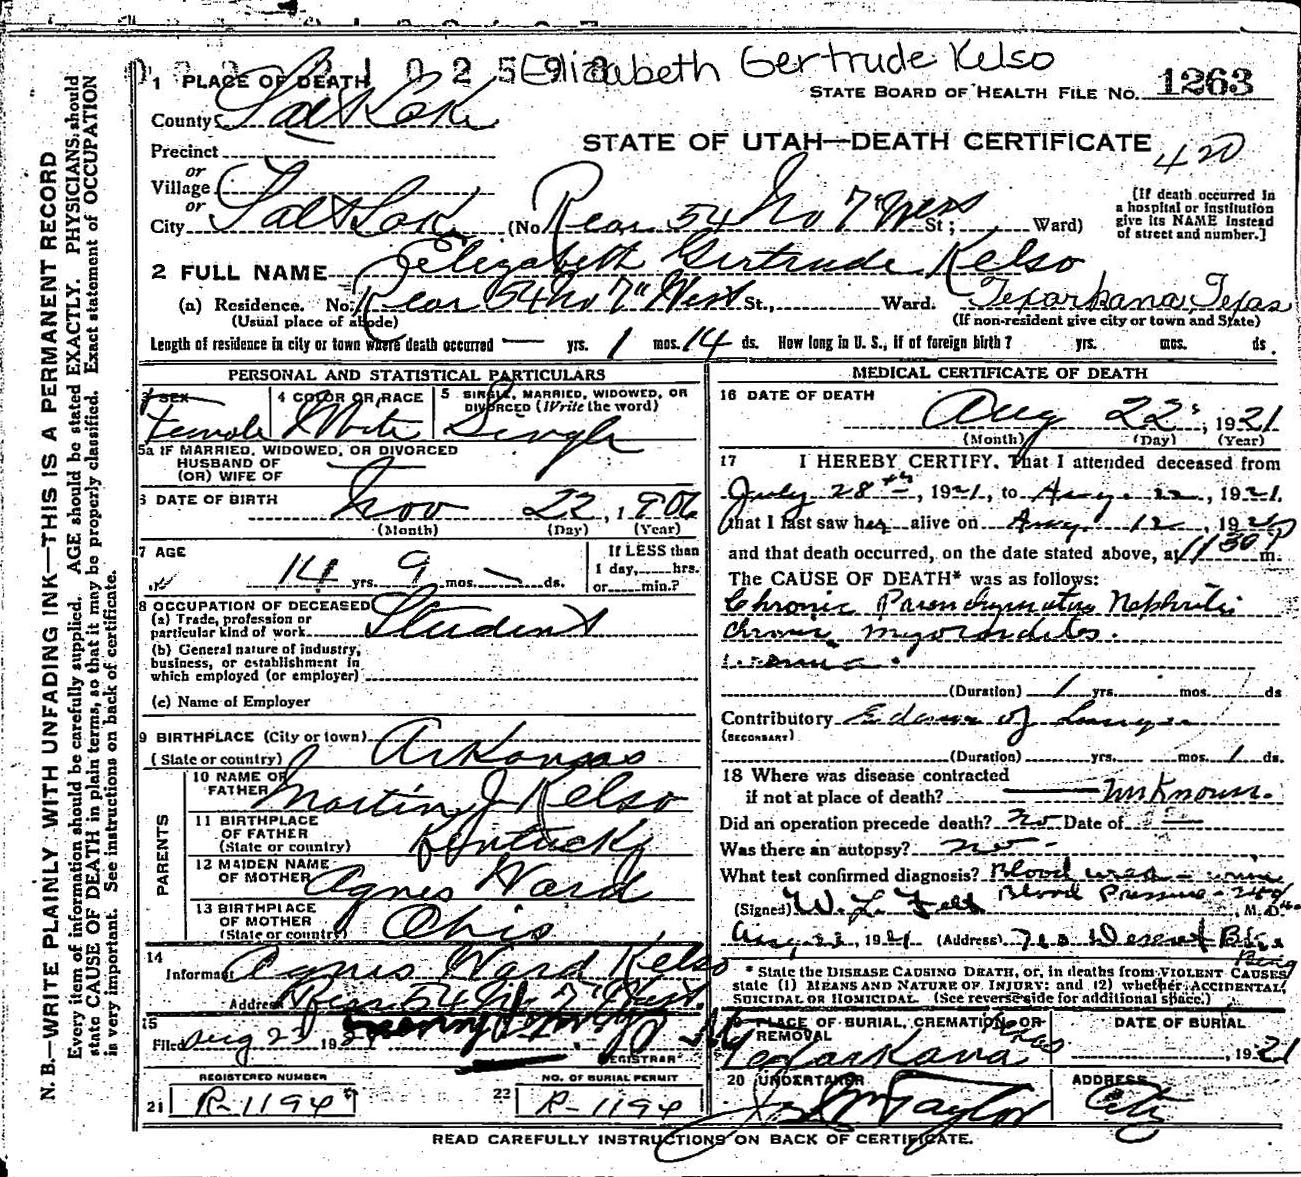 Elizabeth Gertrude Kelso
1 PLACE OF DEATH
STATE BOARD OF HEALTH FILE NO. 1263
County Salt Lake
STATE OF UTAH—DEATH CERTIFICATE
420
Precinct
or
Village
or
City Salt Lake (No Rear 54 No 7" West St; Ward)
[If death occurred in
a hospital or institution
give its NAME instead
of street and number.]
2 FULL NAME Elizabeth Gertrude Kelso
(a) Residence. No. Rear 54 No 7" West St., Ward. Texarkana, Texas
(Usual place of abode) (If non-resident give city or town and State)
Length of residence in city or town where death occurred — yrs. 1 mos. 14 ds. How long in U. S., if of foreign birth? yrs. mos. ds.
PERSONAL AND STATISTICAL PARTICULARS
3 SEX 4 COLOR OR RACE 5 SINGLE, MARRIED, WIDOWED, OR
DIVORCED (Write the word)
Female White Single
5a IF MARRIED, WIDOWED, OR DIVORCED
HUSBAND OF
(OR) WIFE OF —
6 DATE OF BIRTH Nov 22, 1906
(Month) (Day) (Year)
7 AGE If LESS than
1 day, hrs.
14 yrs. 9 mos. — ds. or min.?
8 OCCUPATION OF DECEASED
(a) Trade, profession or
particular kind of work Student
(b) General nature of industry,
business, or establishment in
which employed (or employer)
(c) Name of Employer
9 BIRTHPLACE (City or town)
(State or country) Arkansas
PARENTS
10 NAME OF
FATHER Martin J Kelso
11 BIRTHPLACE
OF FATHER
(State or country) Kentucky
12 MAIDEN NAME
OF MOTHER Agnes Ward
13 BIRTHPLACE
OF MOTHER
(State or country) Ohio
14
Informant Agnes Ward Kelso
Address Rear 54 No 7" West
15
Filed Aug 23 192
REGISTRAR
REGISTERED NUMBER
21 R-1194
NO. OF BURIAL PERMIT
22 R-1194
MEDICAL CERTIFICATE OF DEATH
16 DATE OF DEATH
Aug 22, 1921
(Month) (Day) (Year)
17 I HEREBY CERTIFY, That I attended deceased from
July 28th, 1921, to Aug. 22, 1921,
that I last saw her alive on Aug. 12, 192
and that death occurred, on the date stated above, at 1130 P m.
The CAUSE OF DEATH* was as follows:
Chronic Parenchymatous Nephritis
Chronic myocarditis.
Uremia.
(Duration) 1 yrs. mos. ds
Contributory Edema of Lungs
(SECONDARY)
(Duration) yrs. mos. 1 ds.
18 Where was disease contracted
if not at place of death? Unknown.
Did an operation precede death? No Date of —
Was there an autopsy? No -
What test confirmed diagnosis? Blood urea - urine
Blood Pressure -
(Signed) W. L. , M. D.
Aug 23, 1921 (Address) Deseret Bk.
Bldg
* State the DISEASE CAUSING DEATH, or, in deaths from VIOLENT CAUSES,
state (1) MEANS AND NATURE OF INJURY; and (2) whether ACCIDENTAL,
SUICIDAL OR HOMICIDAL. (See reverse side for additional space.)
19 PLACE OF BURIAL, CREMATION, OR
REMOVAL
Texarkana
DATE OF BURIAL
, 1921
20 UNDERTAKER
Jos Wm Taylor
ADDRESS
City
READ CAREFULLY INSTRUCTIONS ON BACK OF CERTIFICATE.
N. B.—WRITE PLAINLY WITH UNFADING INK—THIS IS A PERMANENT RECORD
Every item of information should be carefully supplied. AGE should be stated EXACTLY. PHYSICIANS should
state CAUSE OF DEATH in plain terms, so that it may be properly classified. Exact statement of OCCUPATION
is very important. See instructions on back of certificate.